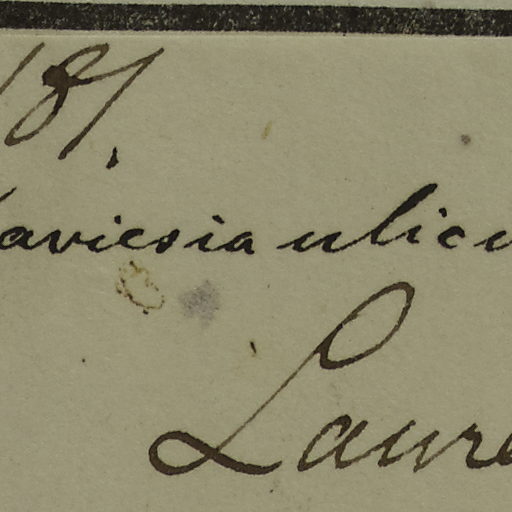 187.
aviesia ulicu
Laure